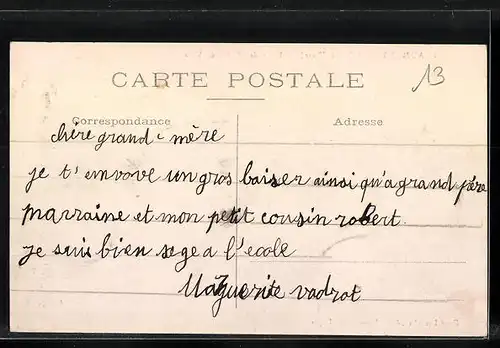 CARTE POSTALE
13
Correspondance
Adresse
chère grand-mère
je t'envove un gros baiser ainsi qu'a grand père
marraine et mon petit cousin robert
je suis bien sage a l'ecole
Marguerite vadrot